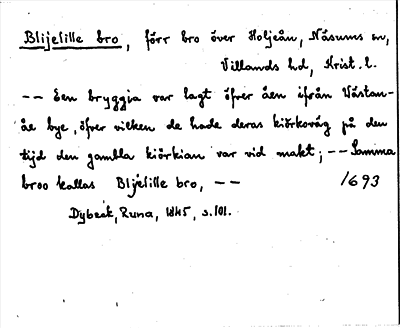 Blijelille bro, förr bro över Holjeån, Näsums sn,
Villands hd, Krist. l.
-- Een bryggia var lagt öfver åen ifrån Västan-
åe bye, öfver vilken de hade deras kiörkoväg på den
tijd den gambla kiörkian var vid makt; -- Samma
broo kallas Blijelille bro, -- 1693
Dybeck, Runa, 1845, s. 101.